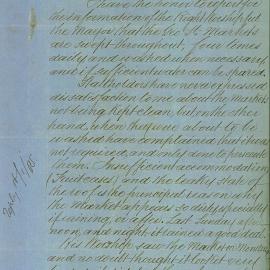 I have the honor to report for
the information of the Right Worshipful
the Mayor, that the Geo. St. Markets
are swept throughout, four times
daily and washed when necessary
and if sufficient water can be spared.
Stallholders have never expressed
dissatisfaction to me about the Markets
not being kept clean, but on the other
hand, when they were about to be
washed have complained that it was
not required, and only done to
them. Insufficient accommodation
and the leaky state of
the roof is the principal reason why
the Market appears so dirty, especially
if raining, or after. Last Sunday after
noon, and night it rained a good deal.
His Worship saw the Market on Monday
and no doubt thought it looked very